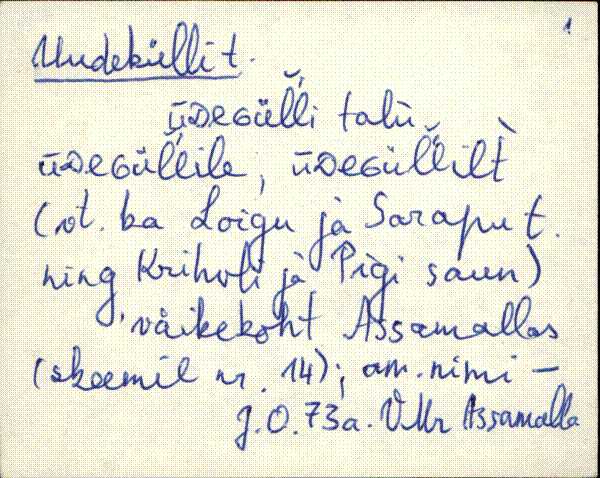 1
Uudeküllit.
ūᴅᴇɢüĺ̆li talu
ūᴅᴇɢüĺ̆leile, ūᴅᴇɢüĺ̆lilt̀
(vt. ka Loigu ja Saraput.
ning Krihvli ja Pigi saun)
väikekoht Assamallas
(skeemil nr. 14); am. nimi –
J.O. 73a. VMr Assamalla